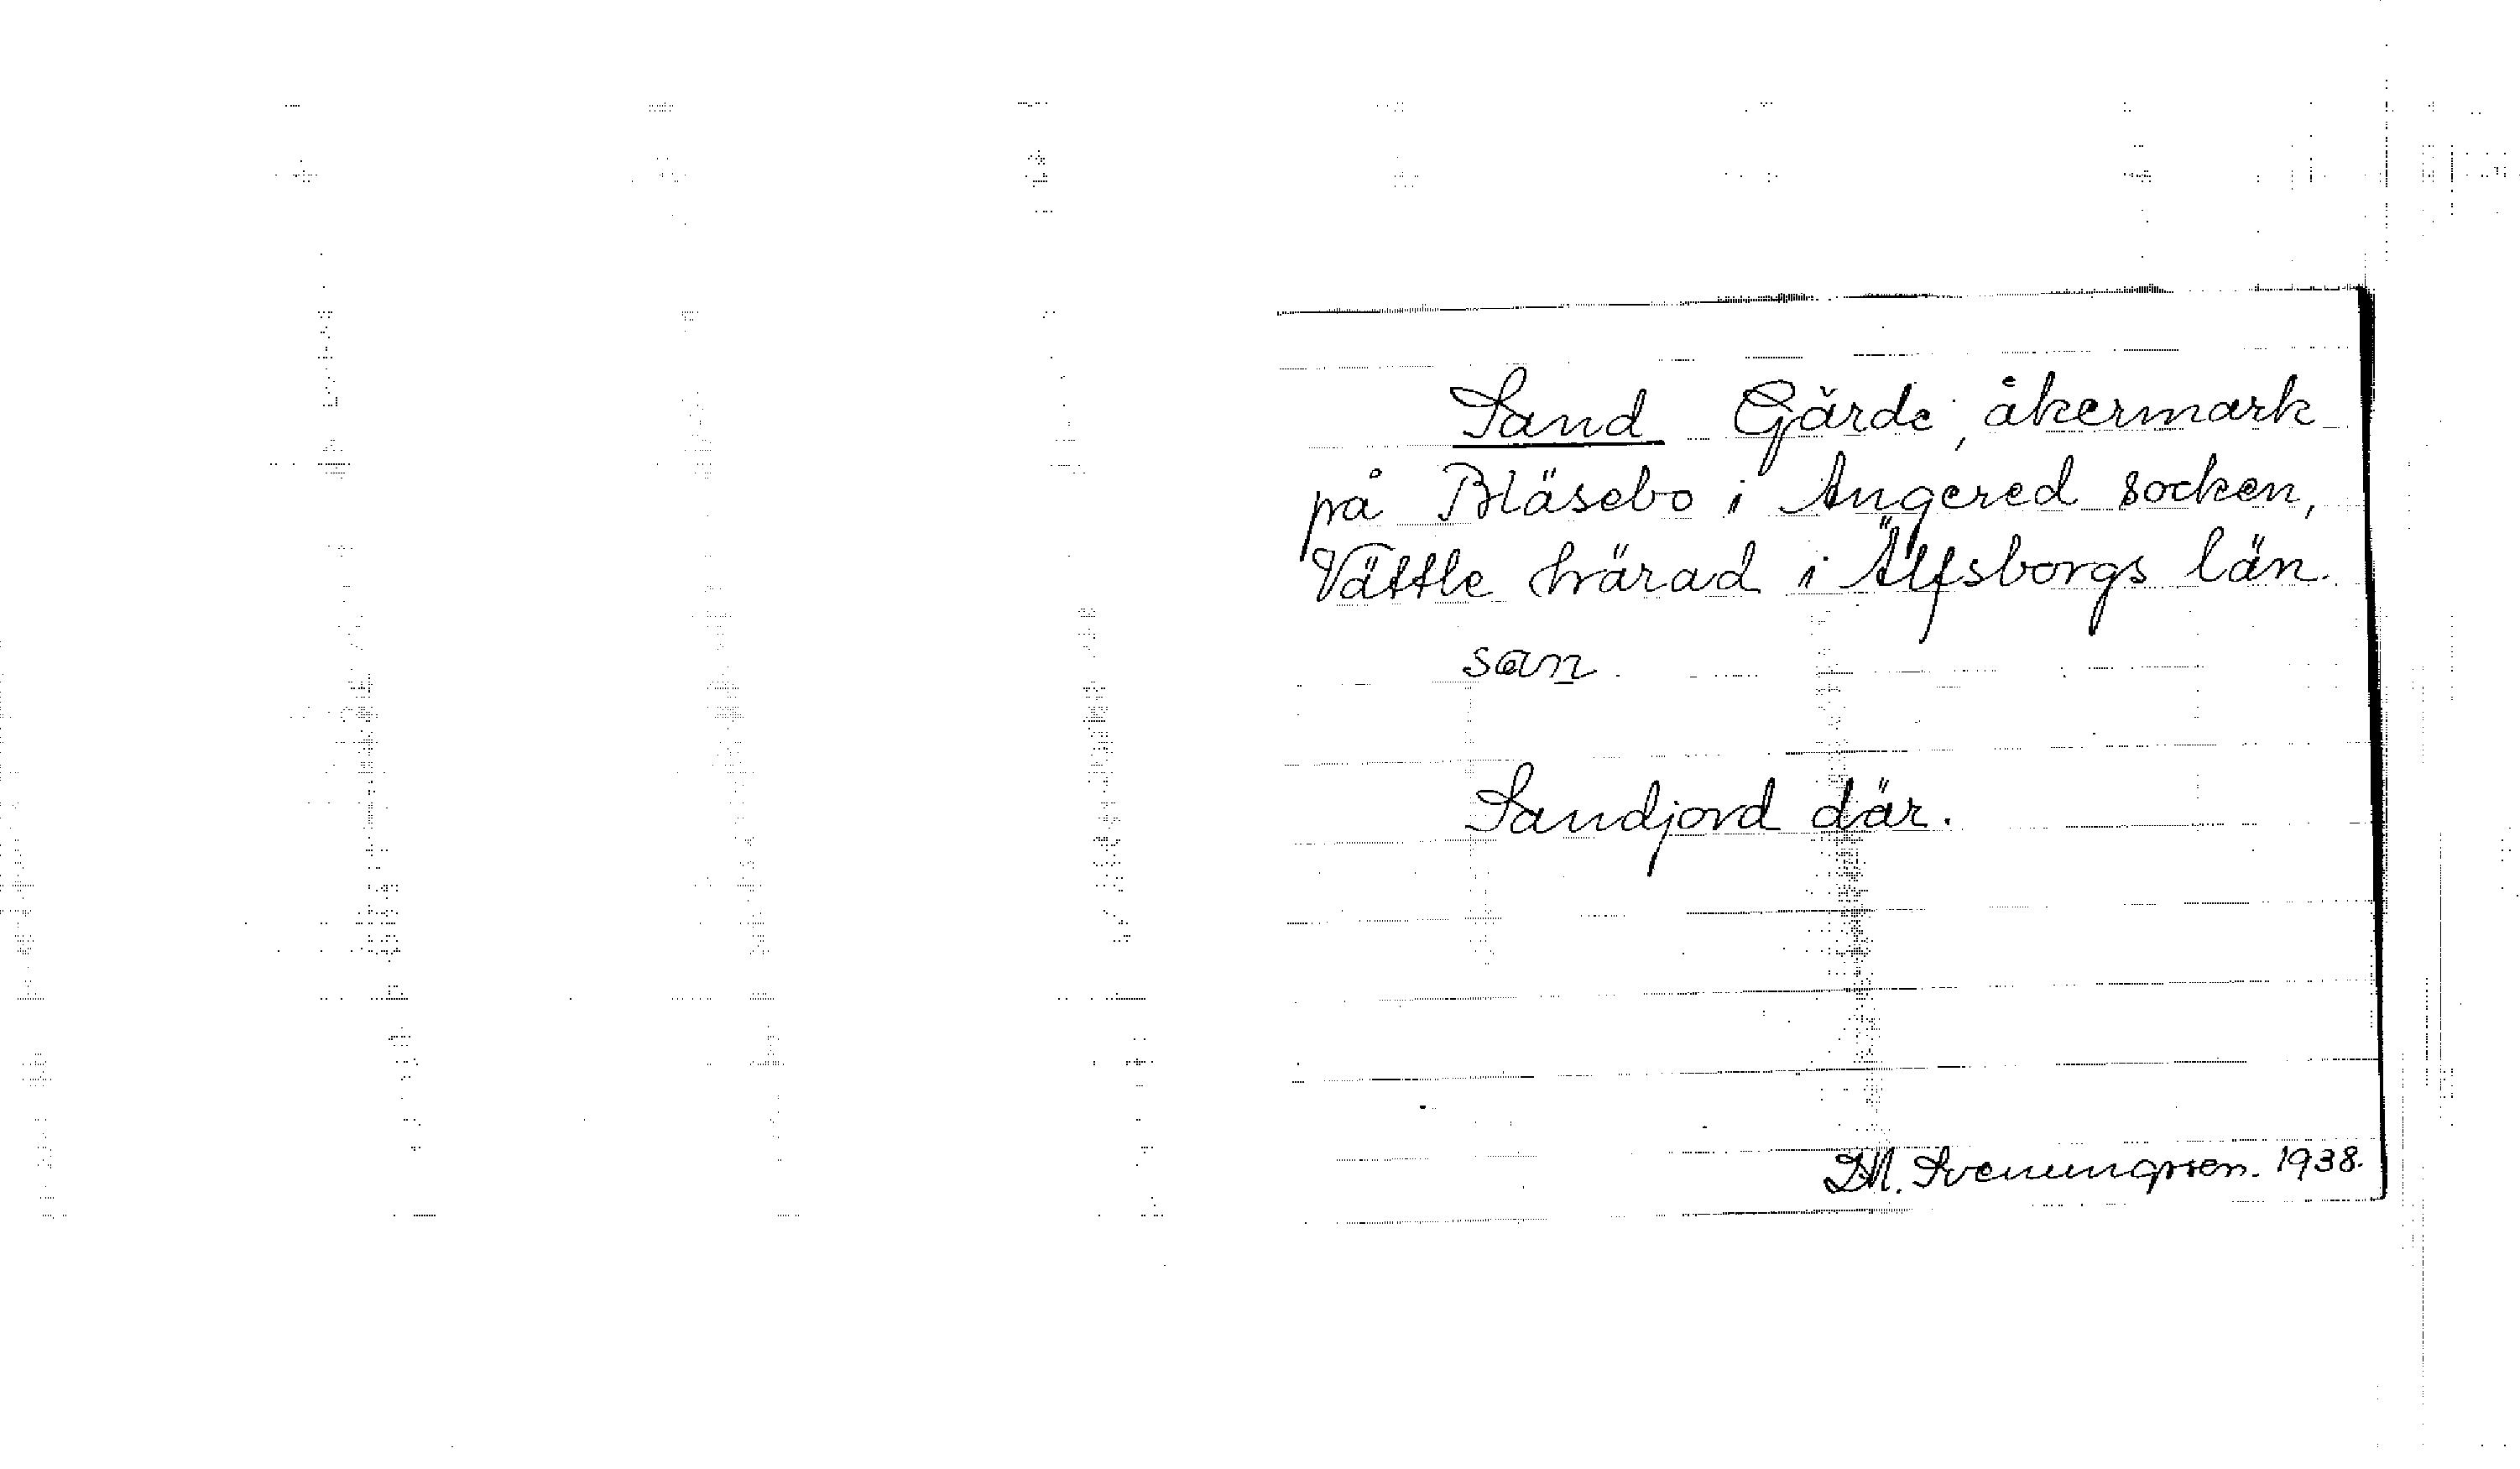 Sand Gärde, åkermark
på Bläsebo i Angered socken,
Vättle härad i Älfsborgs län.
san
Sandjord där.
M. Svenungsson. 1938.